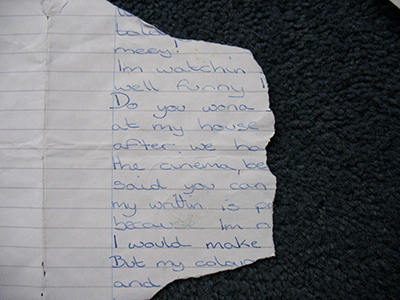 meey!
Im watchin
well funny
Do you wona
at my house
after we ha
the cinema, be
said you can
my writtin is p
because Im n
I would make
But my colour
and